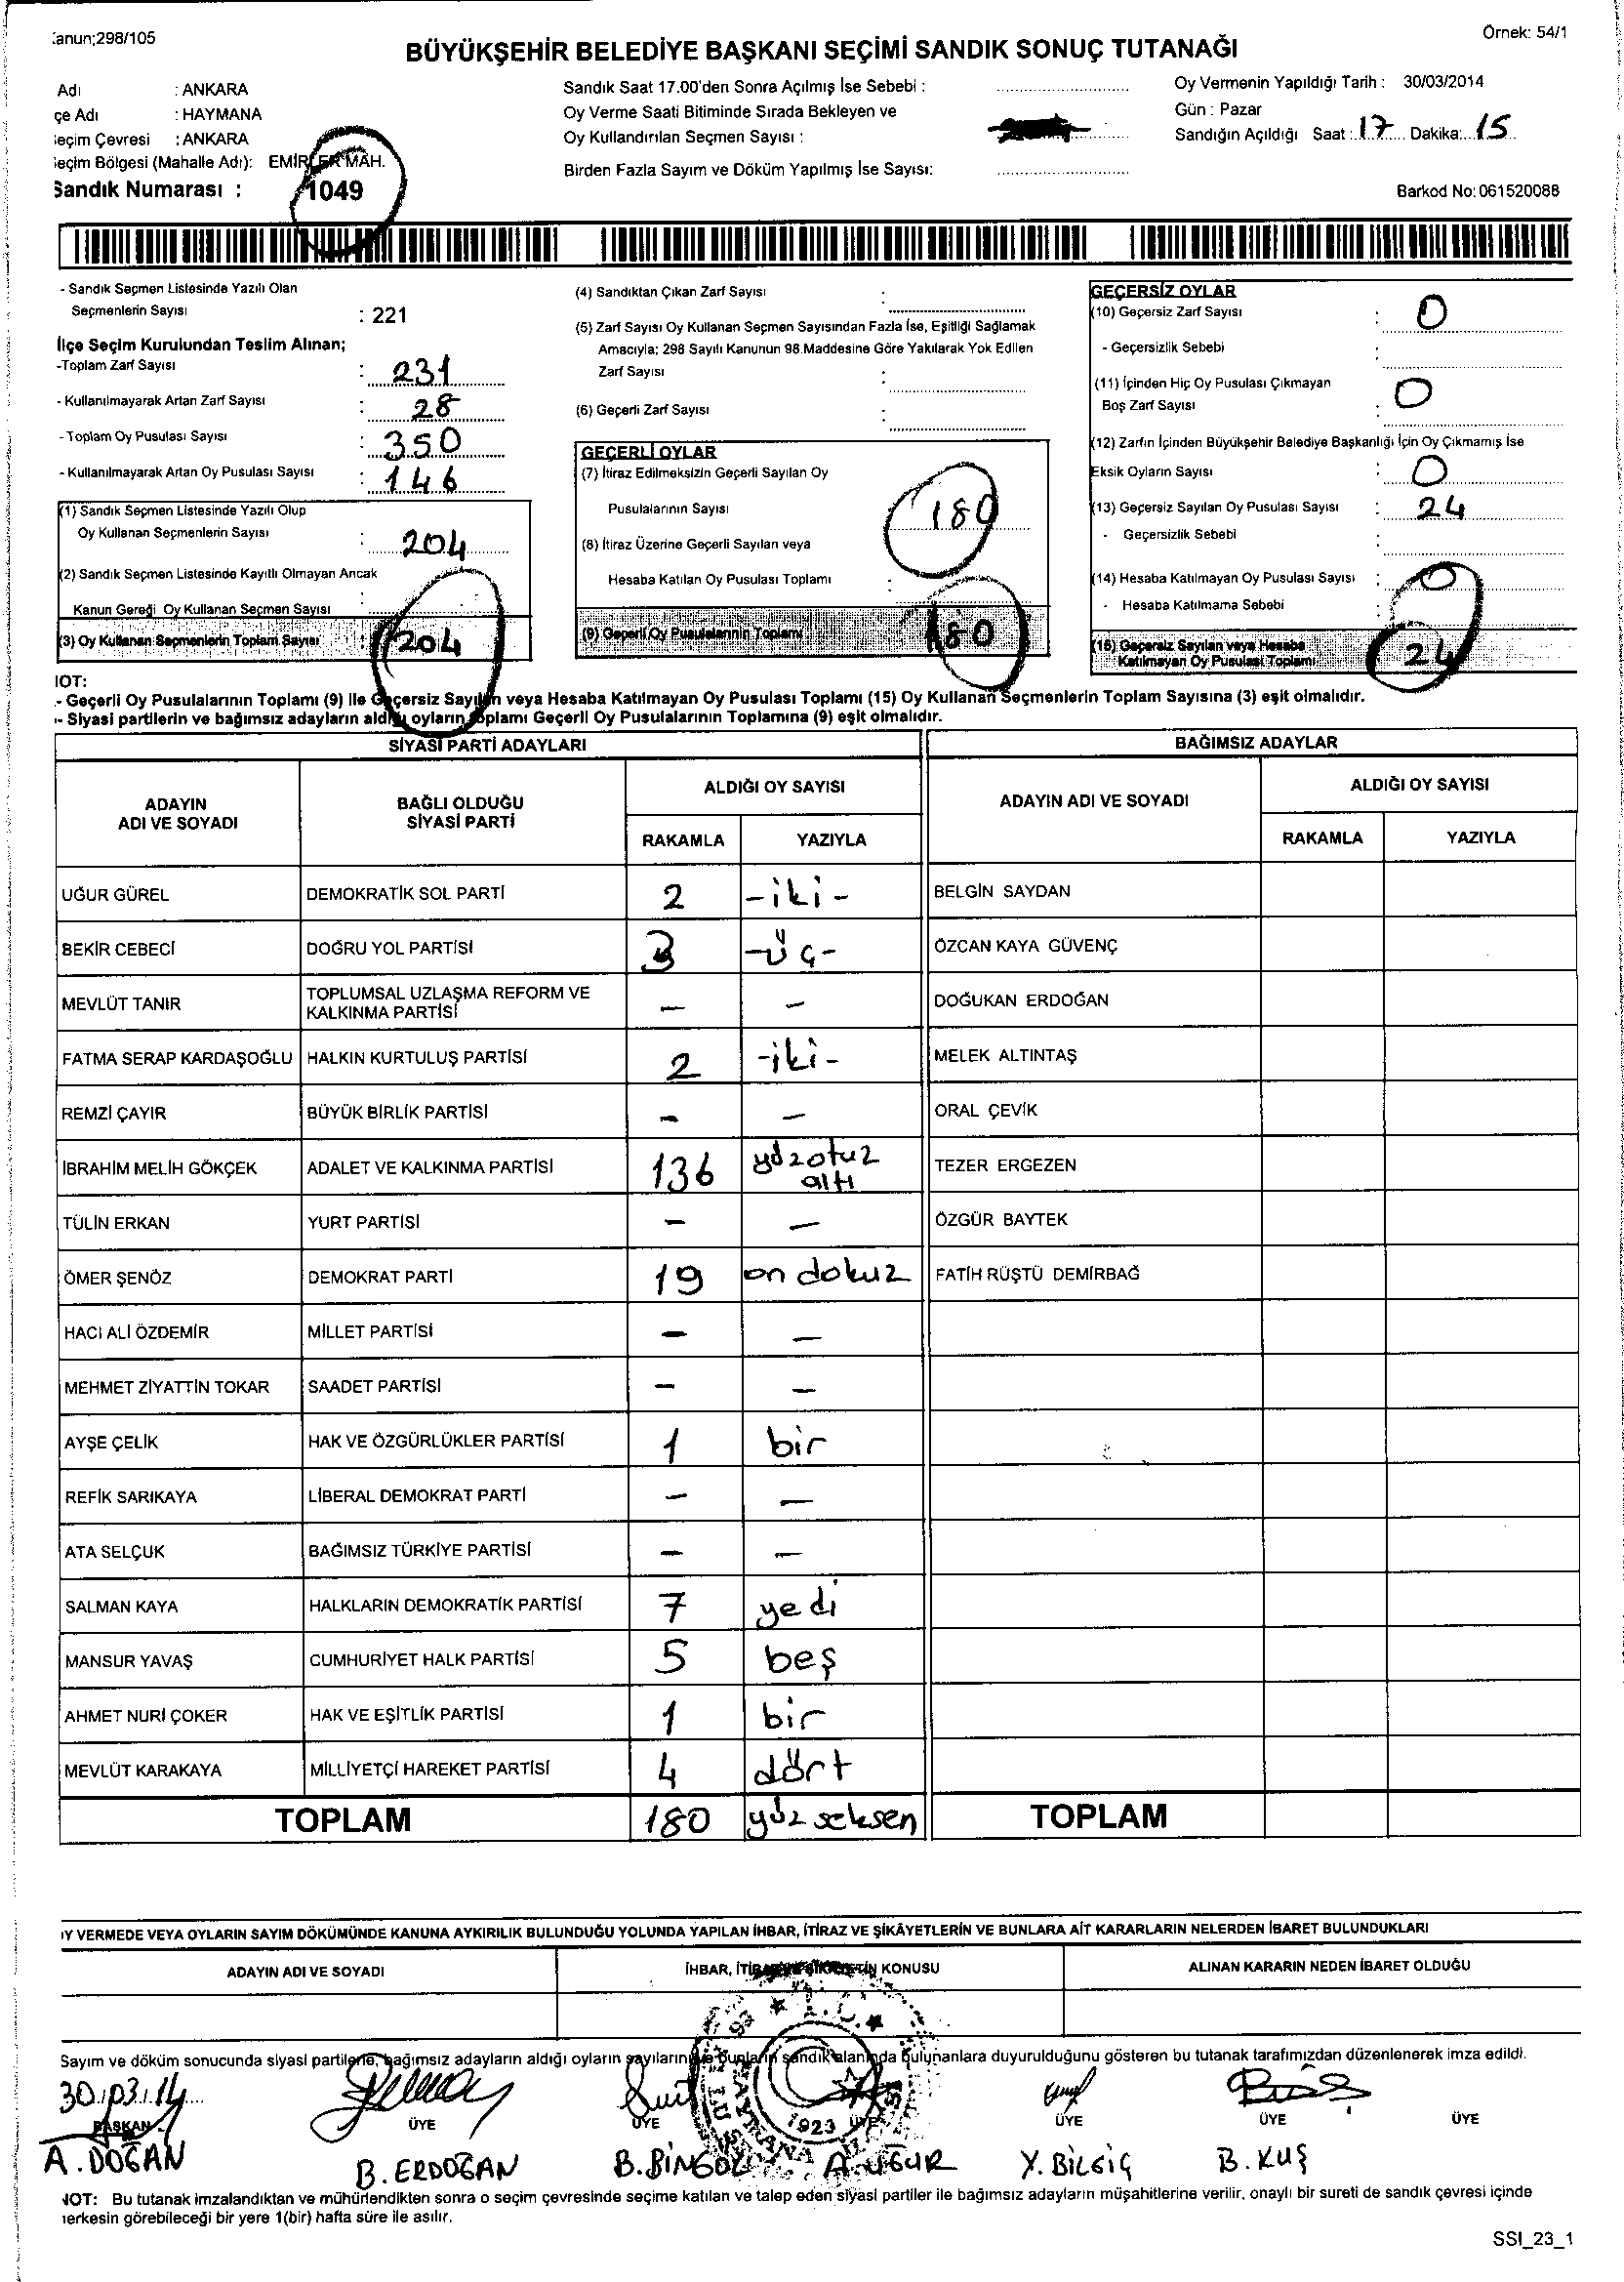 anun;298/105
Örnek: 54/1
BÜYÜKŞEHİR BELEDİYE BAŞKANI SEÇİMİ SANDIK SONUÇ TUTANAĞI
Adı : ANKARA
çe Adı : HAYMANA
eçim Çevresi : ANKARA
eçim Bölgesi (Mahalle Adı): EMİRLER MAH.
Sandık Numarası : 1049
Sandık Saat 17.00'den Sonra Açılmış İse Sebebi :
Oy Verme Saati Bitiminde Sırada Bekleyen ve
Oy Kullandırılan Seçmen Sayısı :
Birden Fazla Sayım ve Döküm Yapılmış İse Sayısı:
Oy Vermenin Yapıldığı Tarih : 30/03/2014
Gün : Pazar
Sandığın Açıldığı Saat : 17 Dakika: 15
Barkod No: 061520088
- Sandık Seçmen Listesinde Yazılı Olan
Seçmenlerin Sayısı : 221
İlçe Seçim Kurulundan Teslim Alınan;
-Toplam Zarf Sayısı : 231
- Kullanılmayarak Artan Zarf Sayısı : 28
- Toplam Oy Pusulası Sayısı : 350
- Kullanılmayarak Artan Oy Pusulası Sayısı : 146
(1) Sandık Seçmen Listesinde Yazılı Olup
Oy Kullanan Seçmenlerin Sayısı : 204
(2) Sandık Seçmen Listesinde Kayıtlı Olmayan Ancak
Kanun Gereği Oy Kullanan Seçmen Sayısı :
(3) Oy Kullanan Seçmenlerin Toplam Sayısı : 204
(4) Sandıktan Çıkan Zarf Sayısı :
(5) Zarf Sayısı Oy Kullanan Seçmen Sayısından Fazla İse, Eşitliği Sağlamak
Amacıyla; 298 Sayılı Kanunun 98.Maddesine Göre Yakılarak Yok Edilen
Zarf Sayısı :
(6) Geçerli Zarf Sayısı :
GEÇERLİ OYLAR
(7) İtiraz Edilmeksizin Geçerli Sayılan Oy
Pusulalarının Sayısı 180
(8) İtiraz Üzerine Geçerli Sayılan veya
Hesaba Katılan Oy Pusulası Toplamı :
(9) Geçerli Oy Pusulalarının Toplamı 180
GEÇERSİZ OYLAR
(10) Geçersiz Zarf Sayısı : 0
- Geçersizlik Sebebi :
(11) İçinden Hiç Oy Pusulası Çıkmayan
Boş Zarf Sayısı : 0
(12) Zarfın İçinden Büyükşehir Belediye Başkanlığı İçin Oy Çıkmamış İse
Eksik Oyların Sayısı : 0
(13) Geçersiz Sayılan Oy Pusulası Sayısı : 24
- Geçersizlik Sebebi :
(14) Hesaba Katılmayan Oy Pusulası Sayısı : 0
- Hesaba Katılmama Sebebi :
(15) Geçersiz Sayılan veya Hesaba
Katılmayan Oy Pusulası Toplamı 24
IOT:
- Geçerli Oy Pusulalarının Toplamı (9) İle Geçersiz Sayılan veya Hesaba Katılmayan Oy Pusulası Toplamı (15) Oy Kullanan Seçmenlerin Toplam Sayısına (3) eşit olmalıdır.
- Siyasi partilerin ve bağımsız adayların aldığı oyların toplamı Geçerli Oy Pusulalarının Toplamına (9) eşit olmalıdır.
SİYASİ PARTİ ADAYLARI
BAĞIMSIZ ADAYLAR
ADAYIN ADI VE SOYADI
BAĞLI OLDUĞU SİYASİ PARTİ
ALDIĞI OY SAYISI
RAKAMLA YAZIYLA
ADAYIN ADI VE SOYADI
ALDIĞI OY SAYISI
RAKAMLA YAZIYLA
UĞUR GÜREL DEMOKRATİK SOL PARTİ 2 -iki- BELGİN SAYDAN
BEKİR CEBECİ DOĞRU YOL PARTİSİ 3 -üç- ÖZCAN KAYA GÜVENÇ
MEVLÜT TANIR TOPLUMSAL UZLAŞMA REFORM VE KALKINMA PARTİSİ — — DOĞUKAN ERDOĞAN
FATMA SERAP KARDAŞOĞLU HALKIN KURTULUŞ PARTİSİ 2 -iki- MELEK ALTINTAŞ
REMZİ ÇAYIR BÜYÜK BİRLİK PARTİSİ - — ORAL ÇEVİK
İBRAHİM MELİH GÖKÇEK ADALET VE KALKINMA PARTİSİ 136 yüzotuz altı TEZER ERGEZEN
TÜLİN ERKAN YURT PARTİSİ - — ÖZGÜR BAYTEK
ÖMER ŞENÖZ DEMOKRAT PARTİ 19 on dokuz FATİH RÜŞTÜ DEMİRBAĞ
HACI ALİ ÖZDEMİR MİLLET PARTİSİ — —
MEHMET ZİYATTİN TOKAR SAADET PARTİSİ - —
AYŞE ÇELİK HAK VE ÖZGÜRLÜKLER PARTİSİ 1 bir
REFİK SARIKAYA LİBERAL DEMOKRAT PARTİ - —
ATA SELÇUK BAĞIMSIZ TÜRKİYE PARTİSİ — —
SALMAN KAYA HALKLARIN DEMOKRATİK PARTİSİ 7 yedi
MANSUR YAVAŞ CUMHURİYET HALK PARTİSİ 5 beş
AHMET NURİ ÇOKER HAK VE EŞİTLİK PARTİSİ 1 bir
MEVLÜT KARAKAYA MİLLİYETÇİ HAREKET PARTİSİ 4 dört
TOPLAM 180 yüz seksen TOPLAM
Y VERMEDE VEYA OYLARIN SAYIM DÖKÜMÜNDE KANUNA AYKIRILIK BULUNDUĞU YOLUNDA YAPILAN İHBAR, İTİRAZ VE ŞİKÂYETLERİN VE BUNLARA AİT KARARLARIN NELERDEN İBARET BULUNDUKLARI
ADAYIN ADI VE SOYADI
İHBAR, İTİRAZ VE ŞİKAYETİN KONUSU
ALINAN KARARIN NEDEN İBARET OLDUĞU
Sayım ve döküm sonucunda siyasi partilerle, bağımsız adayların aldığı oyların sayılarını ve bunların sandık alanında bulunanlara duyurulduğunu gösteren bu tutanak tarafımızdan düzenlenerek imza edildi.
30.03.14
BAŞKAN ÜYE ÜYE ÜYE ÜYE ÜYE ÜYE
T.C. 1923
A. DOĞAN B. ERDOĞAN B. BİNGÖL A. UĞUR Y. BİLGİÇ B. KUŞ
NOT: Bu tutanak imzalandıktan ve mühürlendikten sonra o seçim çevresinde seçime katılan ve talep eden siyasi partiler ile bağımsız adayların müşahitlerine verilir, onaylı bir sureti de sandık çevresi içinde
herkesin görebileceği bir yere 1(bir) hafta süre ile asılır.
SSI_23_1